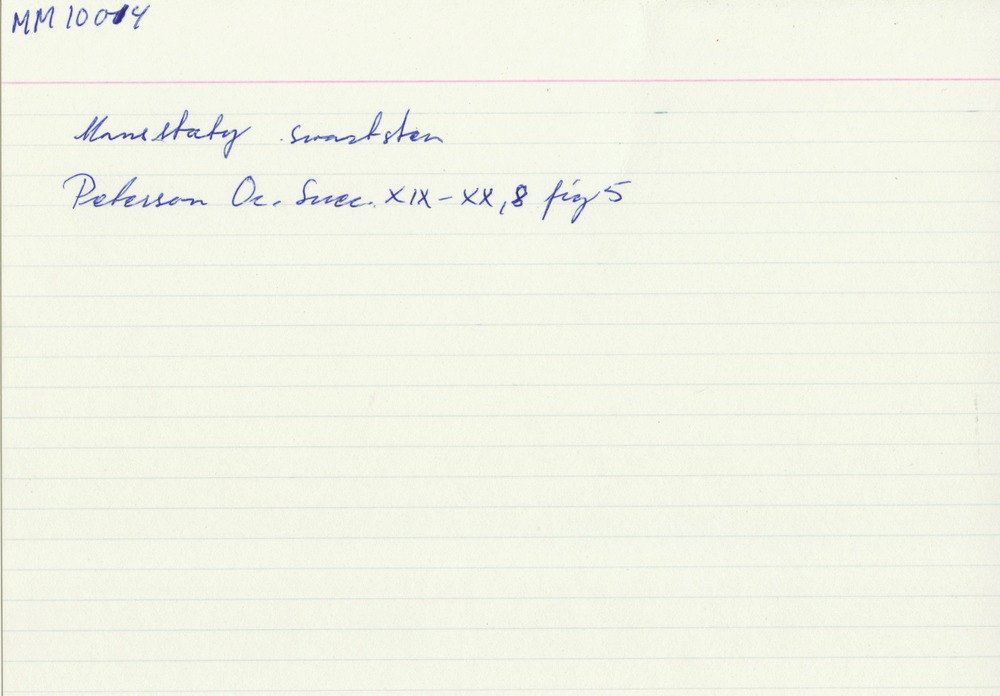 MM 10014
Mansstaty svartsten
Peterson Or. Suec. XIX-XX, 8 fig 5